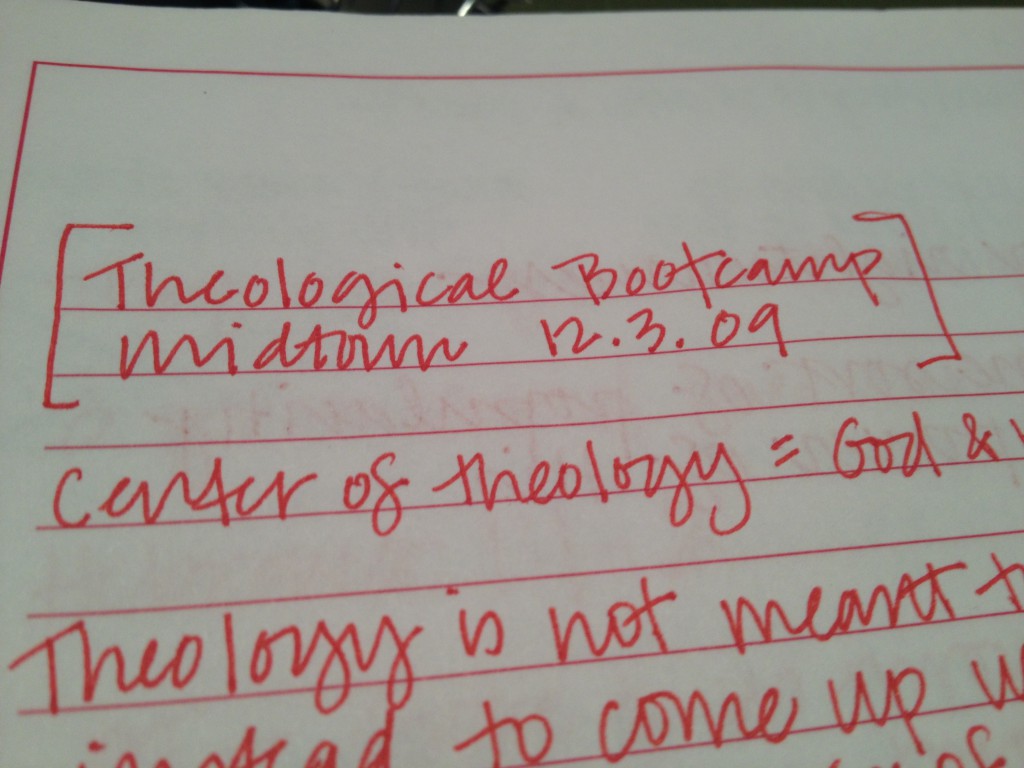 Theological Bootcamp
midtown 12.3.09
Center of theology = God &
Theology is not meant
instead to come up